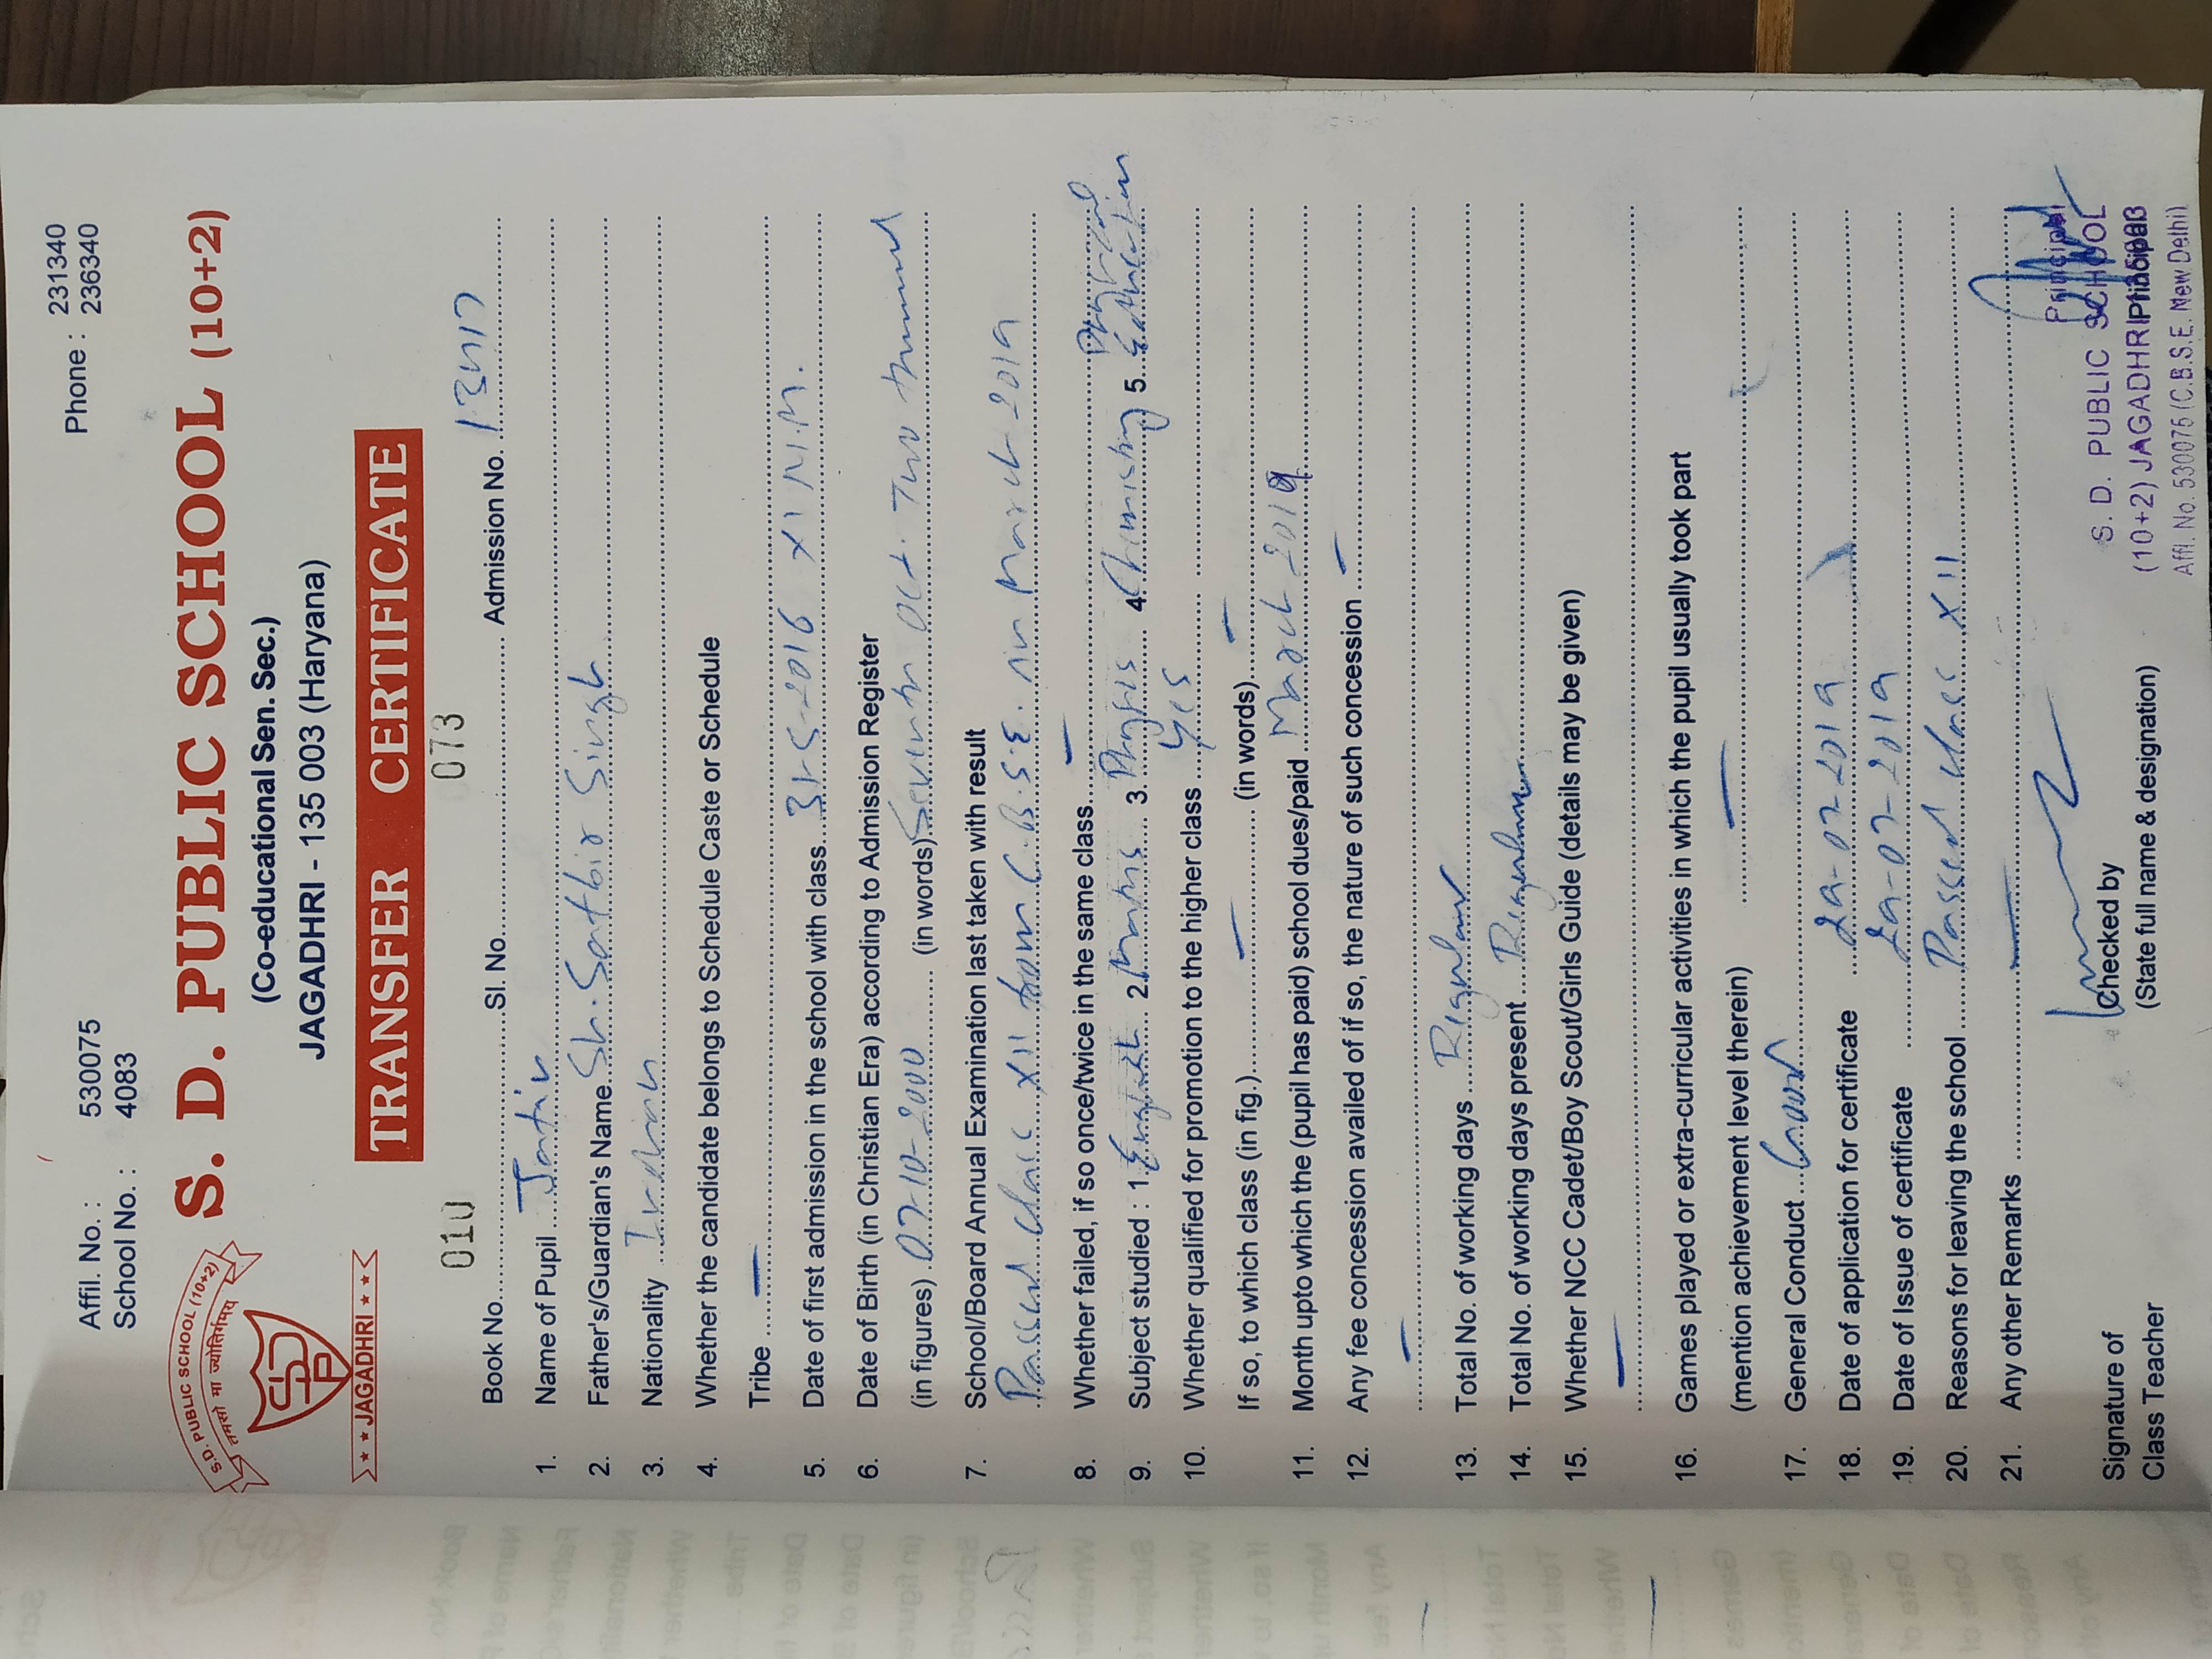 Affil. No. : 530075 Phone : 231340
School No. : 4083 236340
S.D. PUBLIC SCHOOL (10+2)
तमसो मा ज्योतिर्गमय
SDP
★ ★ JAGADHRI ★ ★
S. D. PUBLIC SCHOOL (10+2)
(Co-educational Sen. Sec.)
JAGADHRI - 135 003 (Haryana)
TRANSFER CERTIFICATE
Book No. 010 Sl. No. 073 Admission No. 13417
1. Name of Pupil Jatin
2. Father's/Guardian's Name Sh. Satbir Singh
3. Nationality Indian
4. Whether the candidate belongs to Schedule Caste or Schedule
Tribe —
5. Date of first admission in the school with class 31-5-2016 XI N.M.
6. Date of Birth (in Christian Era) according to Admission Register
(in figures) 07-10-2000 (in words) Seventh Oct. Two
7. School/Board Annual Examination last taken with result
Passed Class XII from C.B.S.E. in March 2019
8. Whether failed, if so once/twice in the same class —
9. Subject studied : 1. English 2. Maths 3. Physics 4. Chemistry 5. Physical Education
10. Whether qualified for promotion to the higher class Yes
If so, to which class (in fig.) — (in words) —
11. Month upto which the (pupil has paid) school dues/paid March 2019
12. Any fee concession availed of if so, the nature of such concession —
—
13. Total No. of working days Regular
14. Total No. of working days present Regular
15. Whether NCC Cadet/Boy Scout/Girls Guide (details may be given)
—
16. Games played or extra-curricular activities in which the pupil usually took part
(mention achievement level therein) —
17. General Conduct Good
18. Date of application for certificate 29-07-2019
19. Date of Issue of certificate 29-07-2019
20. Reasons for leaving the school Passed Class XII
21. Any other Remarks —
Signature of Checked by Principal
Class Teacher (State full name & designation)
Principal
S. D. PUBLIC SCHOOL
(10+2) JAGADHRI
Affl. No. 530075 (C.B.S.E. New Delhi)